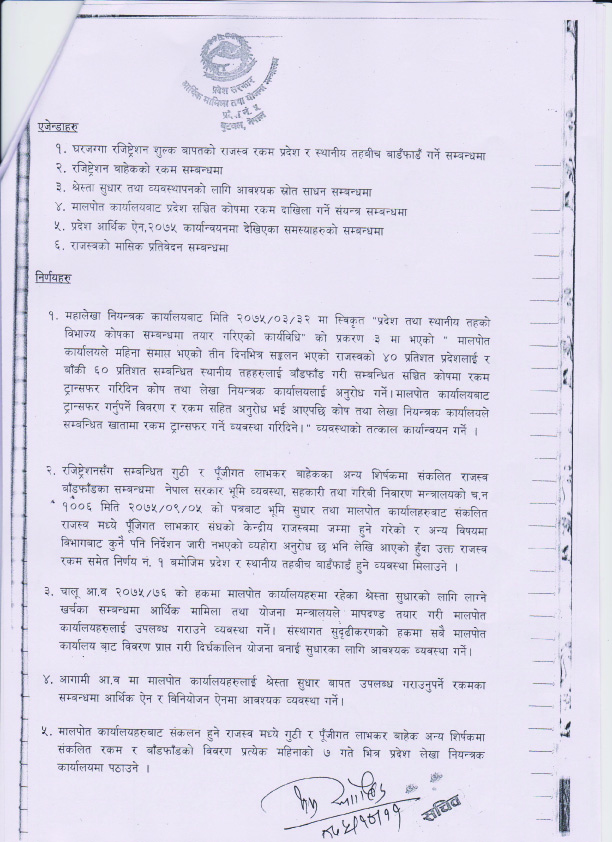 प्रदेश सरकार
आर्थिक मामिला तथा योजना मन्त्रालय
बुटवल, नेपाल
एजेन्डाहरु
१. घरजग्गा रजिष्ट्रेशन शुल्क बापतको राजस्व रकम प्रदेश र स्थानीय तहबीच बाडँफाडँ गर्ने सम्बन्धमा
२. रजिष्ट्रेशन बाहेकको रकम सम्बन्धमा
३. श्रेस्ता सुधार तथा व्यवस्थापनको लागि आवश्यक स्रोत साधन सम्बन्धमा
४. मालपोत कार्यालयबाट प्रदेश सञ्चित कोषमा रकम दाखिला गर्ने संयन्त्र सम्बन्धमा
५. प्रदेश आर्थिक ऐन,२०७५ कार्यान्वयनमा देखिएका समस्याहरुको सम्बन्धमा
६. राजस्वको मासिक प्रतिवेदन सम्बन्धमा
निर्णयहरु
१. महालेखा नियन्त्रक कार्यालयबाट मिति २०७५/०३/३२ मा स्विकृत "प्रदेश तथा स्थानीय तहको
विभाज्य कोषका सम्बन्धमा तयार गरिएको कार्यविधि" को प्रकरण ३ मा भएको " मालपोत
कार्यालयले महिना समाप्त भएको तीन दिनभित्र सङ्कलन भएको राजस्वको ४० प्रतिशत प्रदेशलाई र
बाँकी ६० प्रतिशत सम्बन्धित स्थानीय तहहरुलाई बाँडफाँड गरी सम्बन्धित सञ्चित कोषमा रकम
ट्रान्सफर गरिदिन कोष तथा लेखा नियन्त्रक कार्यालयलाई अनुरोध गर्ने।मालपोत कार्यालयबाट
ट्रान्सफर गर्नुपर्ने विवरण र रकम सहित अनुरोध भई आएपछि कोष तथा लेखा नियन्त्रक कार्यालयले
सम्वन्धित खातामा रकम ट्रान्सफर गर्ने व्यवस्था गरिदिने।" व्यवस्थाको तत्काल कार्यान्वयन गर्ने ।
२. रजिष्ट्रेशनसँग सम्बन्धित गुठी र पूँजीगत लाभकर बाहेकका अन्य शिर्षकमा संकलित राजस्व
बाँडफाँडका सम्बन्धमा नेपाल सरकार भूमि व्यवस्था, सहकारी तथा गरिबी निवारण मन्त्रालयको च.न
१००६ मिति २०७५/०९/०५ को पत्रबाट भूमि सुधार तथा मालपोत कार्यालहरुबाट संकलित
राजस्व मध्ये पूँजिगत लाभकार संघको केन्द्रीय राजस्वमा जम्मा हुने गरेको र अन्य विषयमा
विभागबाट कुनै पनि निर्देशन जारी नभएको व्यहोरा अनुरोध छ भनि लेखि आएको हुँदा उक्त राजस्व
रकम समेत निर्णय नं. १ बमोजिम प्रदेश र स्थानीय तहबीच बाडँफाडँ हुने व्यवस्था मिलाउने ।
३. चालू आ.व २०७५/७६ को हकमा मालपोत कार्यालयहरुमा रहेका श्रेस्ता सुधारको लागि लाग्ने
खर्चका सम्बन्धमा आर्थिक मामिला तथा योजना मन्त्रालयले मापदण्ड तयार गरी मालपोत
कार्यालयहरुलाई उपलब्ध गराउने व्यवस्था गर्ने। संस्थागत सुदृढीकरणको हकमा सबै मालपोत
कार्यालय बाट विवरण प्राप्त गरी दिर्घकालिन योजना बनाई सुधारका लागि आवश्यक व्यवस्था गर्ने।
४. आगामी आ.व मा मालपोत कार्यालयहरुलाई श्रेस्ता सुधार बापत उपलब्ध गराउनुपर्ने रकमका
सम्बन्धमा आर्थिक ऐन र विनियोजन ऐनमा आवश्यक व्यवस्था गर्ने।
५. मालपोत कार्यालयहरुबाट संकलन हुने राजस्व मध्ये गुठी र पूँजीगत लाभकर बाहेक अन्य शिर्षकमा
संकलित रकम र बाँडफाँडको विवरण प्रत्येक महिनाको ७ गते भित्र प्रदेश लेखा नियन्त्रक
कार्यालयमा पठाउने ।
सचिव